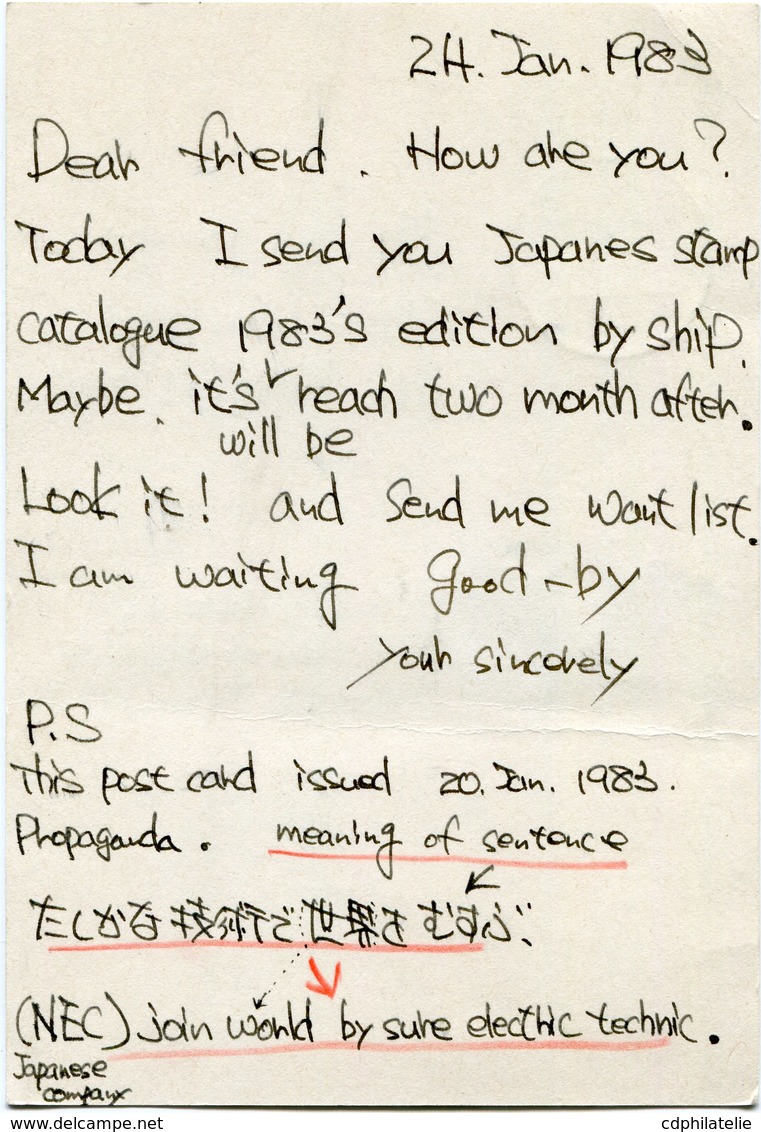 24. Jan. 1983
Dear friend. How are you?
Today I send you Japanes stamp
catalogue 1983's edition by ship.
Maybe. it's reach two month after.
will be
Look it! and send me want list.
I am waiting good-by
your sincerely
P.S
This post card issued 20. Jan. 1983.
Propaganda. meaning of sentence
たしかな技術で世界をむすぶ
(NEC) join world by sure electric technic.
Japanese
company
www.delcampe.net
cdphilatelie